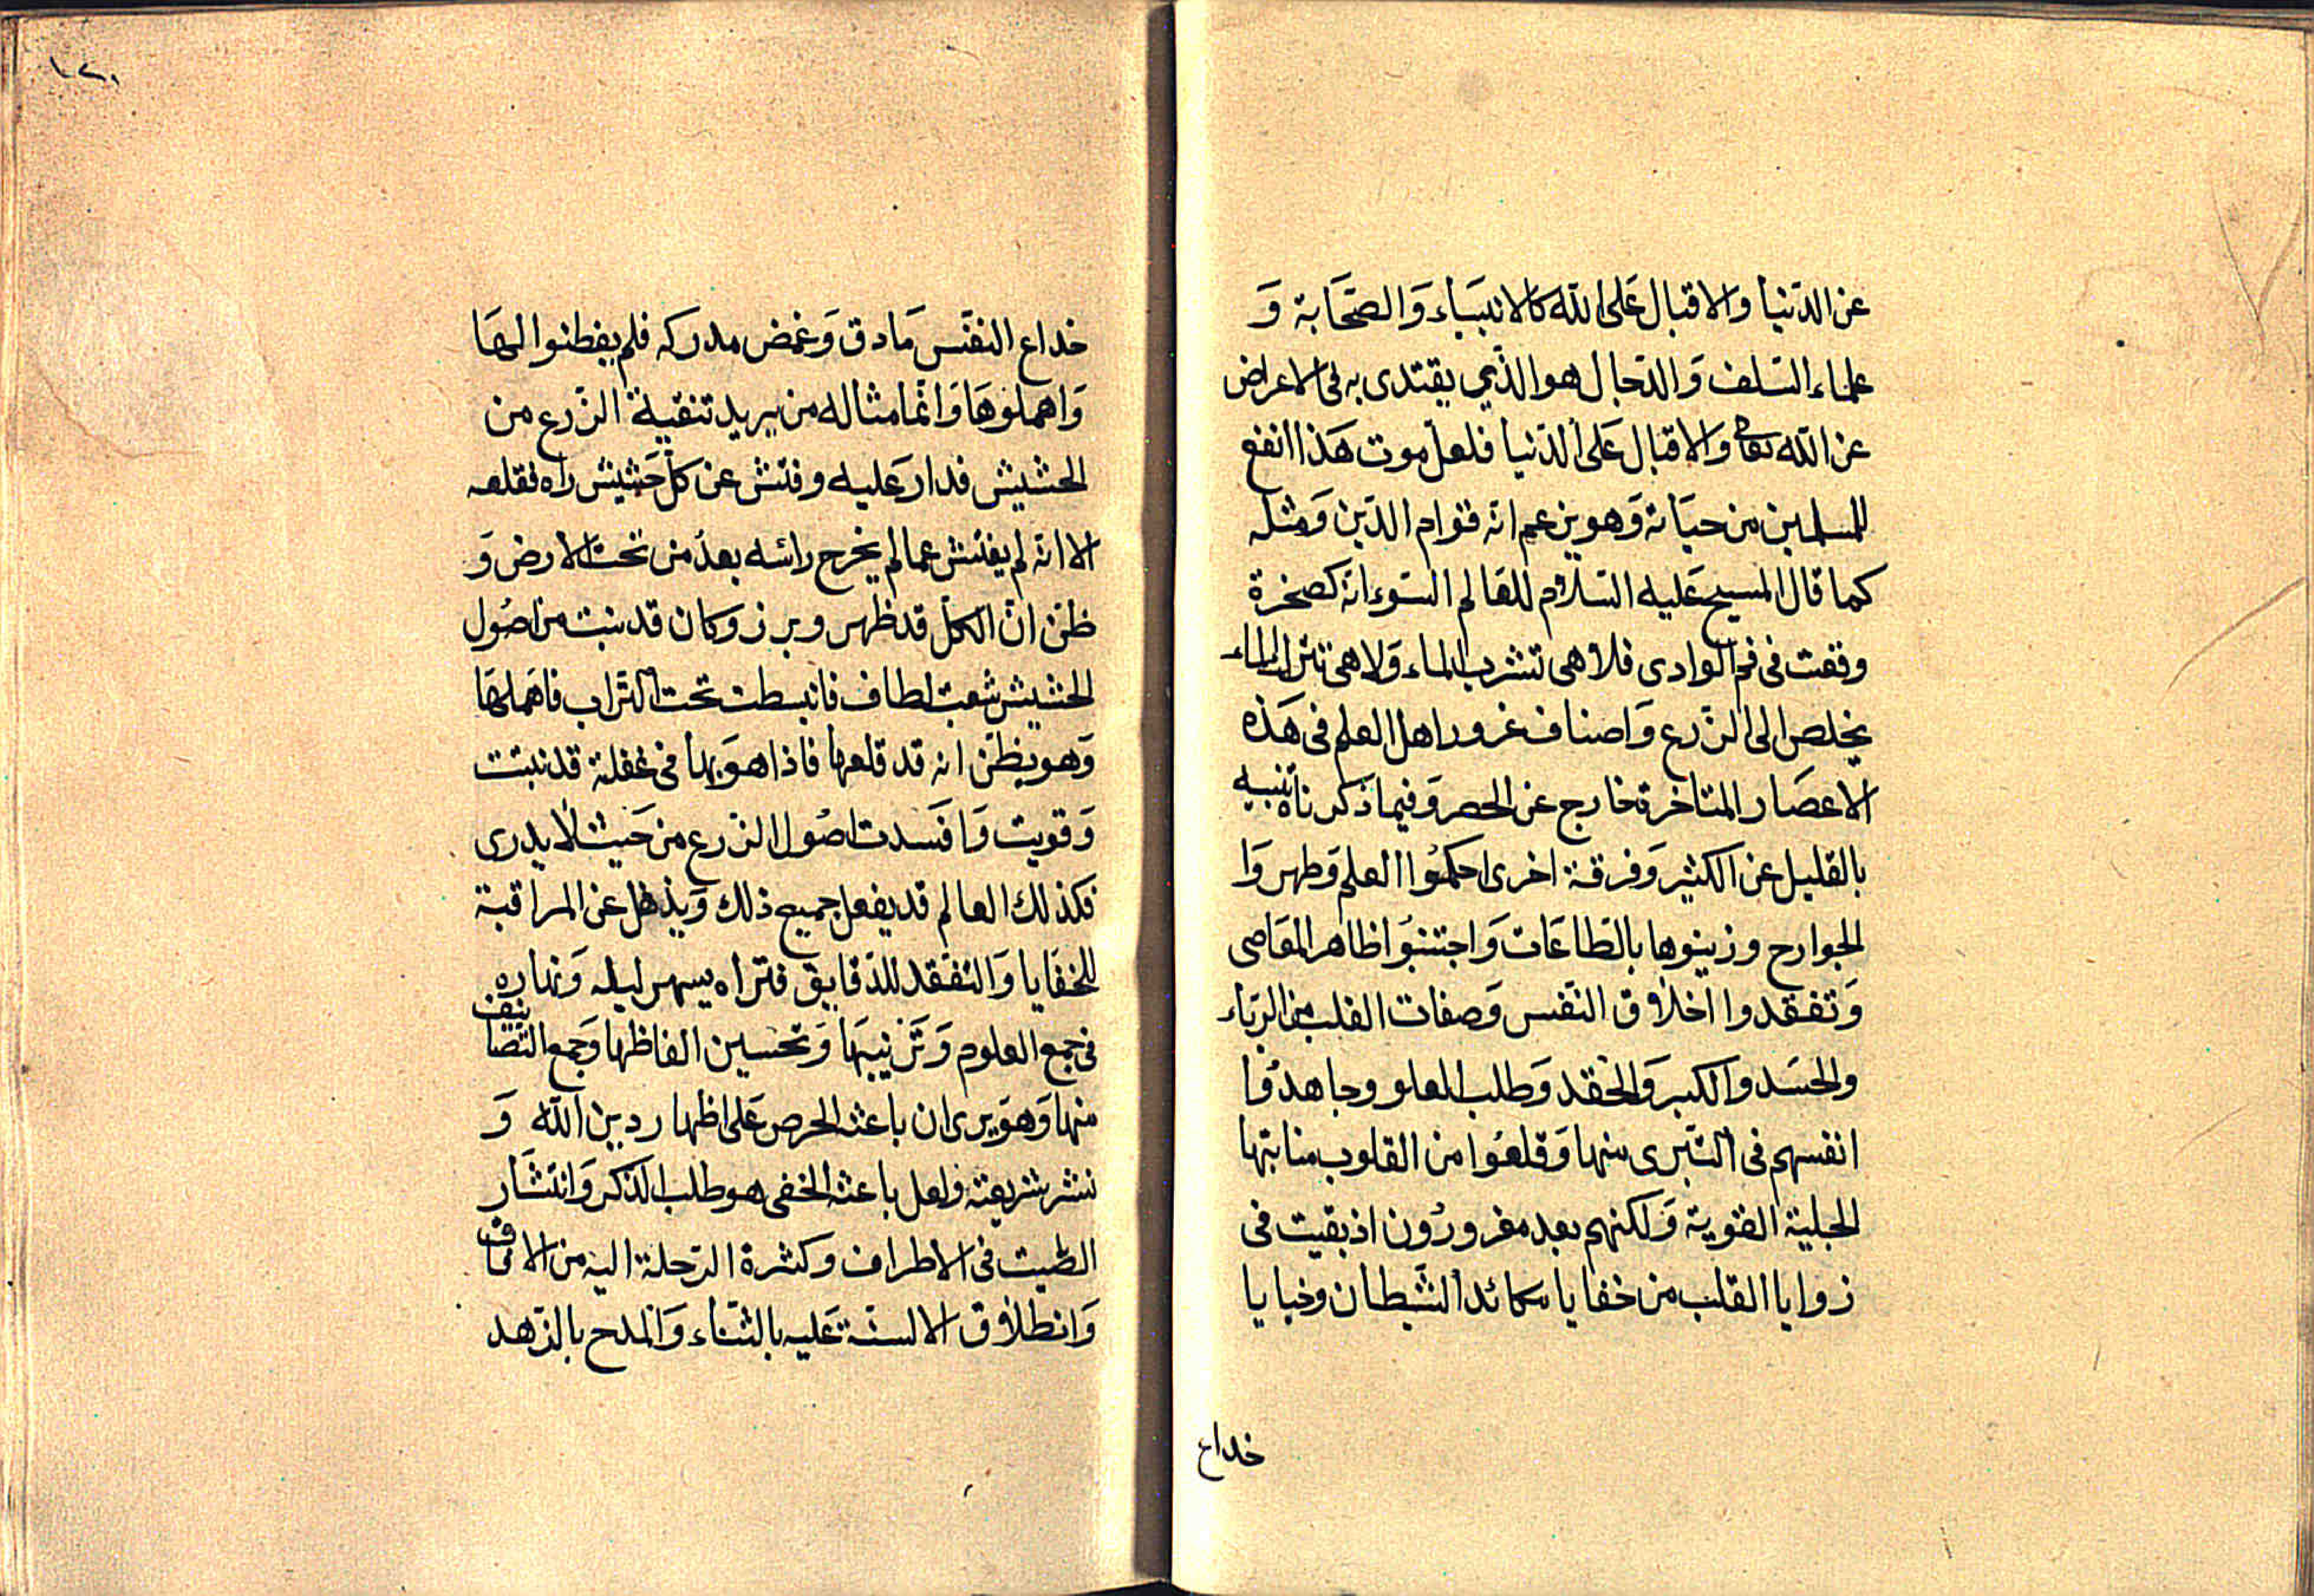 عن الدنيا والاقبال على الله كالانبياء والصحابة و
علماء السلف والدجال هو الذي يقتدى به في الاعراض
عن الله تعالى والاقبال على الدنيا فلعل موت هذا انفع
للمسلمين من حياته وهو يزعم انه قوام الدين ومثله
كما قال المسيح عليه السلام للعالم السوء انه كصخرة
وقفت في فم الوادى فلا هى تشرب الماء ولا هى تترك الماء
يخلص الى الزرع واصناف غرور اهل العلم فى هذه
الاعصار المتاخرة خارج عن الحصر وفيما ذكرناه تنبيه
بالقليل عن الكثير وفرقة اخرى احكموا العلم وطهروا
الجوارح وزينوها بالطاعات واجتنبوا ظاهر المعاصى
وتفقدوا اخلاق النفس وصفات القلب من الرياء
والحسد والكبر والحقد وطلب العلو وجاهدوا
انفسهم فى التبرى منها وقلعوا من القلوب منابتها
الجلية القوية ولكنهم بعد مغرورون اذ بقيت فى
زوايا القلب من خفايا مكائد الشيطان وخبايا
خداع
١٢١
خداع النفس ما دق وغمض مدركه فلم يفطنوا لها
واهملوها وانما مثاله من يريد تنقية الزرع من
الحشيش فدار عليه وفتش عن كل حشيش راه فقلعه
الا انه لم يفتش عما لم يخرج راسه بعد من تحت الارض و
ظن ان الكل قد ظهر وبرز وكان قد نبت من اصول
الحشيش شعب لطاف فانبسطت تحت التراب فاهملها
وهو يظن انه قد قلعها فاذا هو بها فى غفلة قد نبتت
وقويت وافسدت اصول الزرع من حيث لا يدرى
فكذلك العالم قد يفعل جميع ذلك ويذهل عن المراقبة
للخفايا والتفقد للدقايق فتراه يسهر ليله ونهاره
فى جمع العلوم وترتيبها وتحسين الفاظها وجمع التصانيف
منها وهو يرى ان باعثه الحرص على اظهار دين الله و
نشر شريعته ولعل باعثه الخفى هو طلب الذكر وانتشار
الصيت فى الاطراف وكثرة الرحلة اليه من الافاق
وانطلاق الالسنة عليه بالثناء والمدح بالزهد